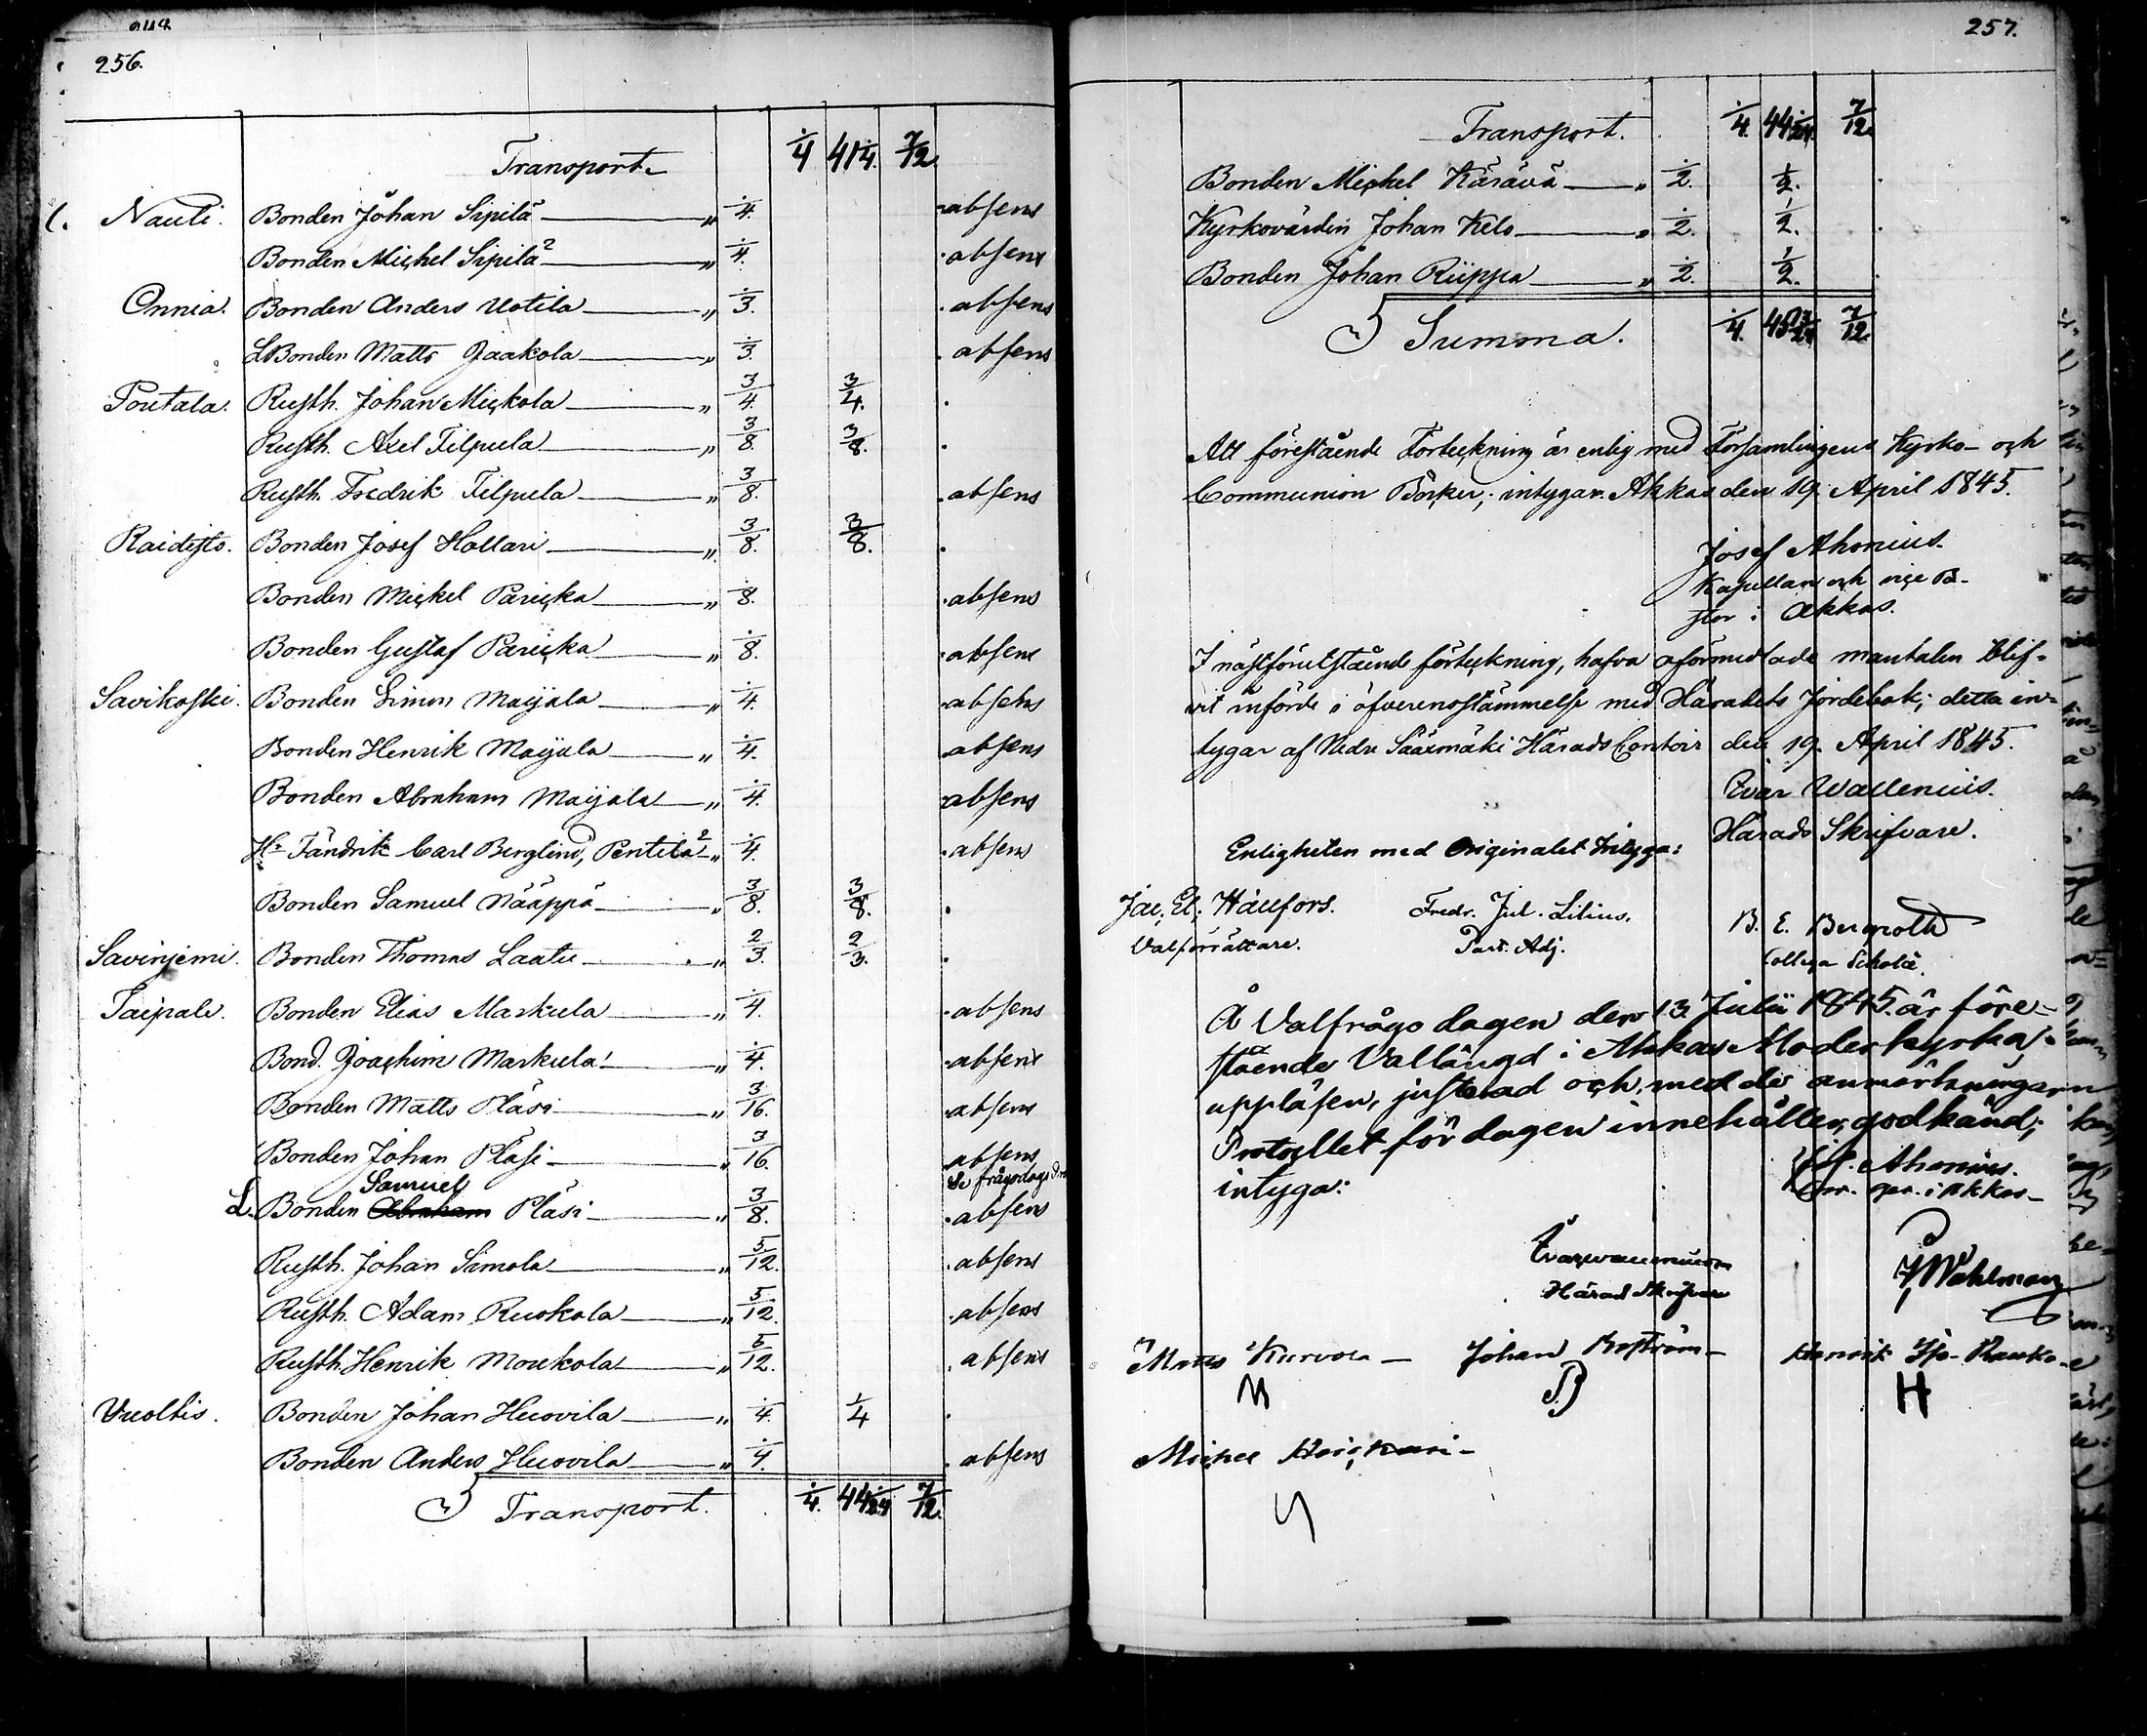 256.
Transport. 1/4 41 1/4. 7/12.
Nauli. Bonden Johan Sipilä " 1/4. absens
Bonden Michel Sipilä 2 " 1/4. absens
Onnia. Bonden Anders Uotila " 1/3. absens
L Bonden Matts Jaakola " 1/3. absens
Poutala. Rusth. Johan Mickola " 3/4. 3/4.
Rusth. Axel Tilpula " 3/8. 3/8.
Rusth. Fredrik Tilpula " 3/8. absens
Raidisto. Bonden Josef Hollari " 3/8. 3/8.
Bonden Mickel Paricka " 1/8. absens
Bonden Gustaf Paricka " 1/8. absens
Savikoski. Bonden Simon Maijala " 1/4. absens
Bonden Henrik Maijala " 1/4. absens
Bonden Abraham Maijala " 1/4. absens
Hr Fändrik Carl Berglind, Pentilä 2 " 1/4. absens
Bonden Samuel Nääppä " 3/8. 3/8.
Savinjemi. Bonden Thomas Laatu " 2/3. 2/3.
Taipale. Bonden Elias Markula " 1/4. absens
Bond. Joachim Markula " 1/4. absens
Bonden Matts Pläsi " 3/16. absens
Bonden Johan Pläsi " 3/16. absens
Samuel Se frågodags
L. Bonden Abraham Pläsi " 3/8. absens
Rusth. Johan Simola " 5/12. absens
Rusth. Adam Ruokola " 5/12. absens
Rusth. Henrik Moukola " 5/12. absens
Vuoltis. Bonden Johan Huovila " 1/4. 1/4
Bonden Anders Huovila " 1/4. absens
Transport. 1/4. 44 1/24 7/12.
257.
Transport. 1/4. 44 1/24. 7/12.
Bonden Mickel Kärävä " 1/2. 1/2.
Kyrkovärden Johan Kelo " 1/2. 1/2.
Bonden Johan Riippa " 1/2. 1/2.
Summa. 1/4. 45 13/24 7/12.
Att förestående Förteckning är enlig med Församlingens Kyrko- och
Communion Böcker, intygar. Akkas den 19 April 1845.
Josef Ahonius.
Kapellan och vice Pa-
stor i Akkas.
I nästförutstående förteckning, hafva oförmedlade mantalen blif-
vit införde i öfverensstämmelse med Häradets Jordebok; detta in-
tygar af Nedre Sääxmäki Härads Contoir den 19 April 1845.
Evar Wallenius.
Härads Skrifvare.
Enligheten med Originalet Intyga:
Jac. El. Hällfors. Fredr. Jul. Lilius. B. E. Bergroth
Valförrättare. Past. Adj. Collega Scholæ.
Å Valfrågo dagen den 13 Julii 1845 är före-
stående Vallängd i Akkas Moderkyrka
uppläsen, justerad och, med de anmärkningar
Protocollet för dagen innehåller, godkänd;
intyga: Jos. Ahonius.
i Akkas
Evar Wallenius
Härad Skrifvare J Wahlman
Matts Kurvola Johan Boström Henrik Rauko
Michel